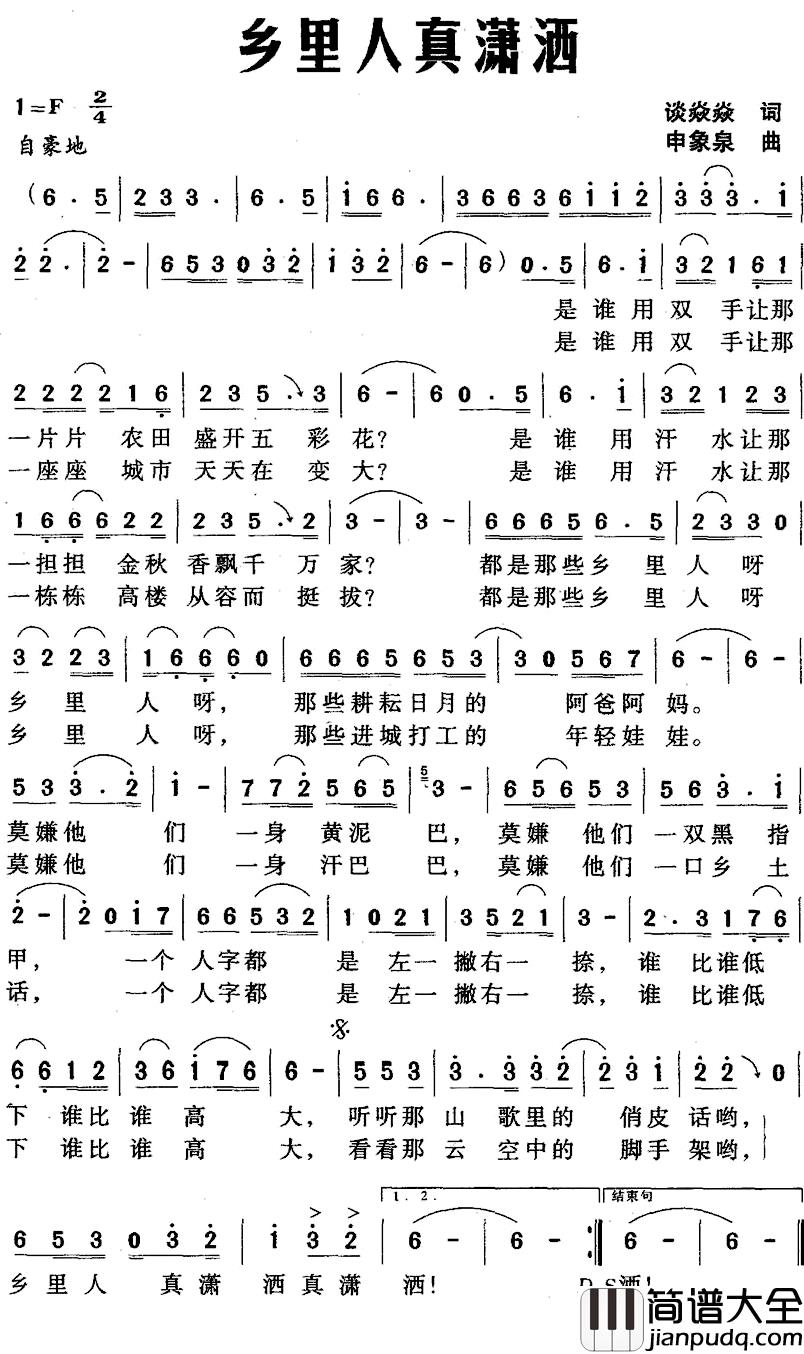 乡里人真潇洒
1=F 2/4 谈焱焱 词
自豪地 申象泉 曲
(6.5 | 233. | 6.5 | i66. | 36636ii2 | 333.i
22. | 2- | 653032 | i32 | 6- | 6) 0.5 | 6.i | 32161
是谁用双手让那
是谁用双手让那
222216 | 235.3 | 6- | 60.5 | 6.i | 32123
一片片农田盛开五彩花? 是谁用汗水让那
一座座城市天天在变大? 是谁用汗水让那
166622 | 235.2 | 3- | 3- | 66656.5 | 2330
一担担金秋香飘千万家? 都是那些乡里人呀
一栋栋高楼从容而挺拔? 都是那些乡里人呀
3223 | 16660 | 6665653 | 30567 | 6- | 6-
乡里人呀, 那些耕耘日月的 阿爸阿妈。
乡里人呀, 那些进城打工的 年轻娃娃。
533.2 | i- | 772565 | 5 3- | 65653 | 563.i
莫嫌他们一身黄泥巴, 莫嫌他们一双黑指
莫嫌他们一身汗巴巴, 莫嫌他们一口乡土
2- | 20i7 | 66532 | 1021 | 3521 | 3- | 2.3176
甲, 一个人字都是左一撇右一捺, 谁比谁低
话, 一个人字都是左一撇右一捺, 谁比谁低
6612 | 36i76 | 6- | 553 | 3.332 | 23i | 220
下谁比谁高大, 听听那山歌里的俏皮话哟,
下谁比谁高大, 看看那云空中的脚手架哟,
1. 2. 结束句
653032 | i32 | 6- | 6- :| 6- | 6-
乡里人真潇洒真潇洒! D.S洒!
简谱大全
jianpudq.com